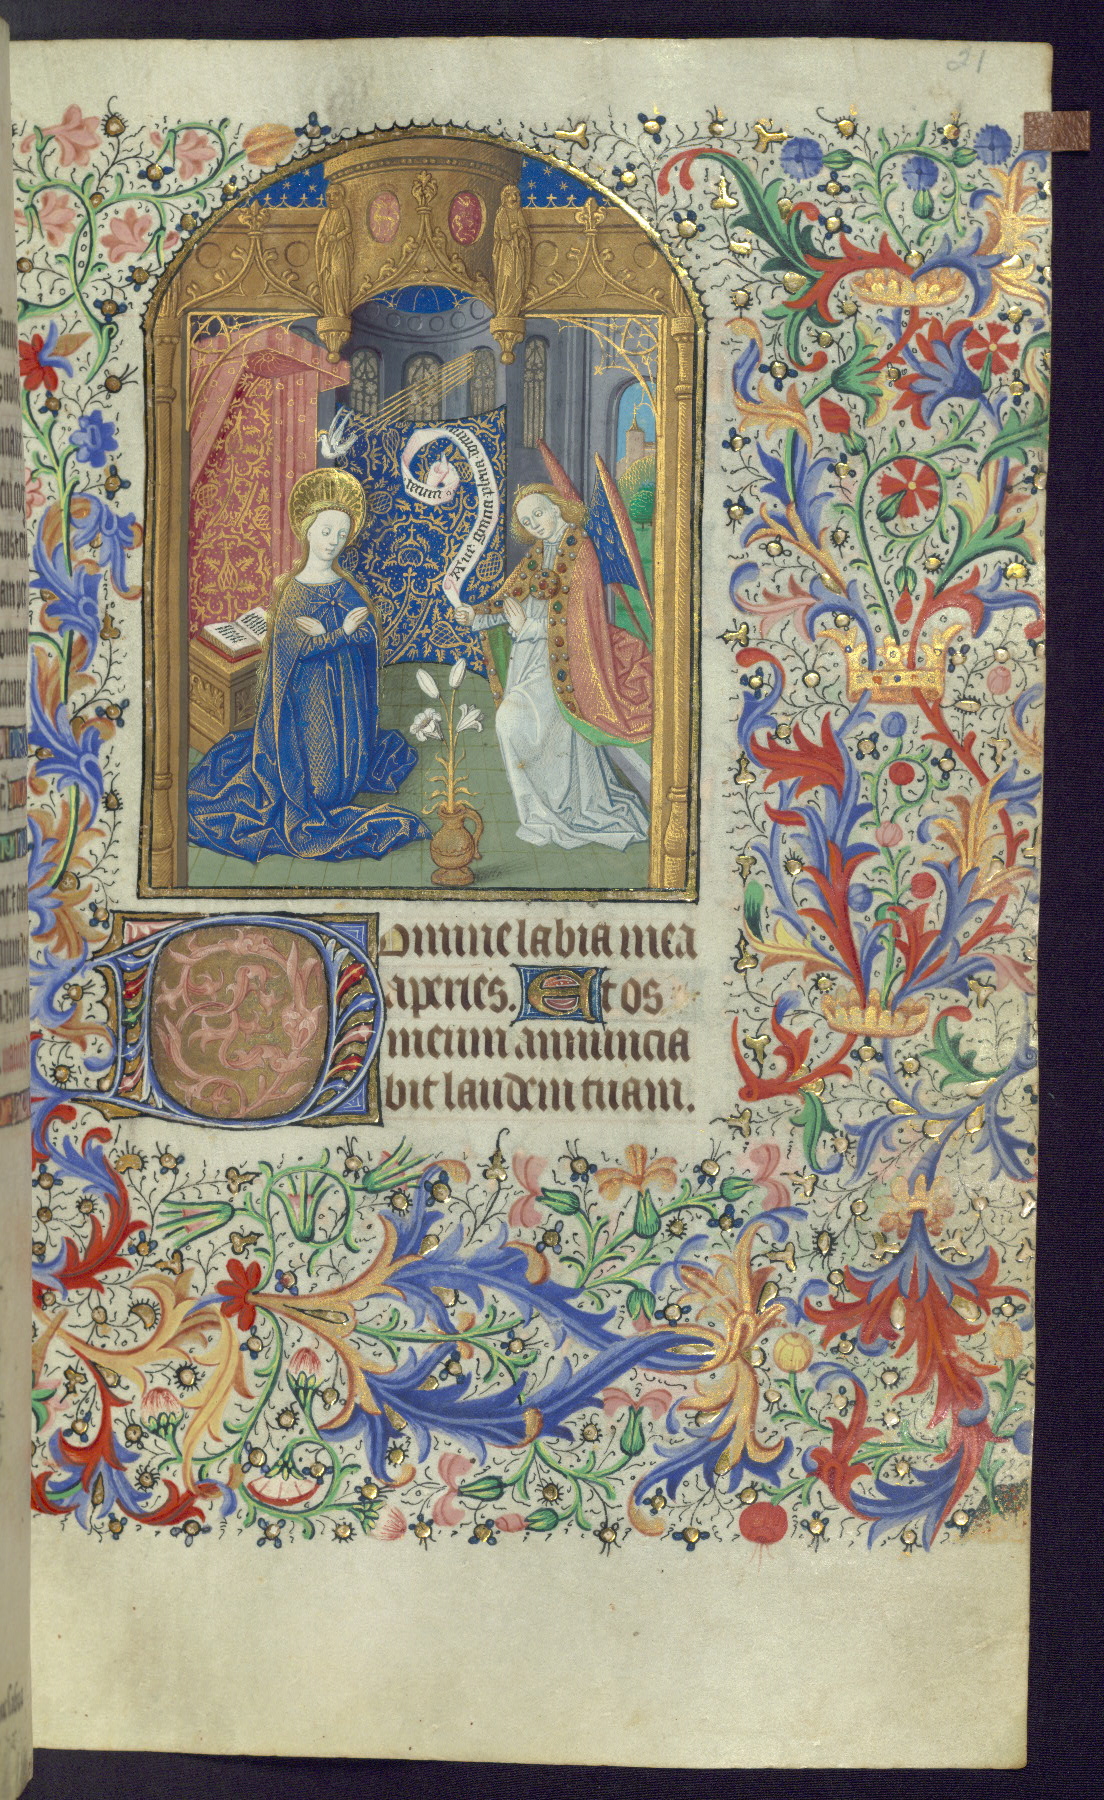 21
Ave gracia plena dominus
tecum
Domine labia mea
aperies. Et os
meum annuncia
bit laudem tuam.